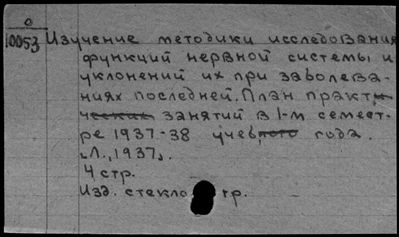 0
10053 Изучение методики исследования
функций нервной системы и
уклонений их при заболева-
ниях последней. План практи-
ческих занятий в 1-м семест-
ре 1937-38 учебного года.
Л., 1937.
4 стр.
Изд. стекло гр.